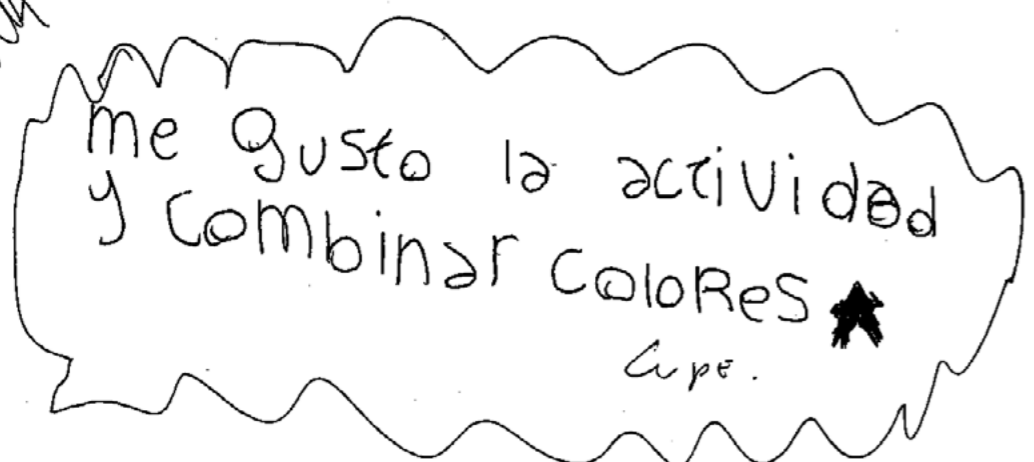 me gusto la actividad
y combinar coloRes
Lupe.